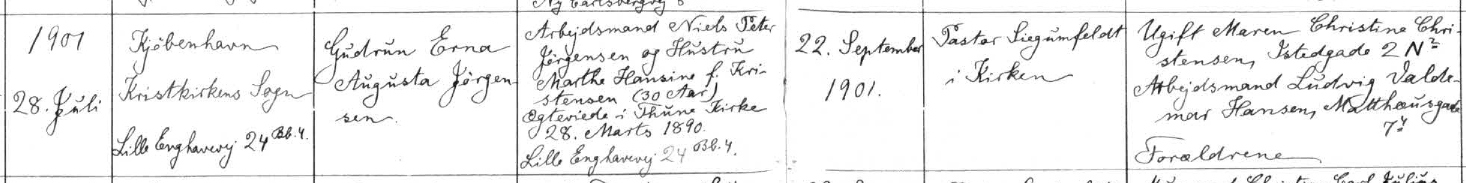 Ny Carlsbergvej 8
1901
28. Juli
Kjöbenhavn
Kristkirkens Sogn
Lille Enghavevej 24 Bb. 4.
Gudrun Erna
Augusta Jörgen-
sen.
Arbejdsmand Niels Peter
Jörgensen og Hustru
Marthe Hansine f. Kri-
stensen (30 Aar)
Ægteviede i Thune Kirke
28. Marts 1890.
Lille Enghavevej 24 Bb. 4.
22. September
1901.
Pastor Siegumfeldt
i Kirken
Ugift Maren Christine Chri-
stensen, Istedgade 2
Arbejdsmand Ludvig Valde-
mar Hansen, Matthæusgade
7 4
Forældrene